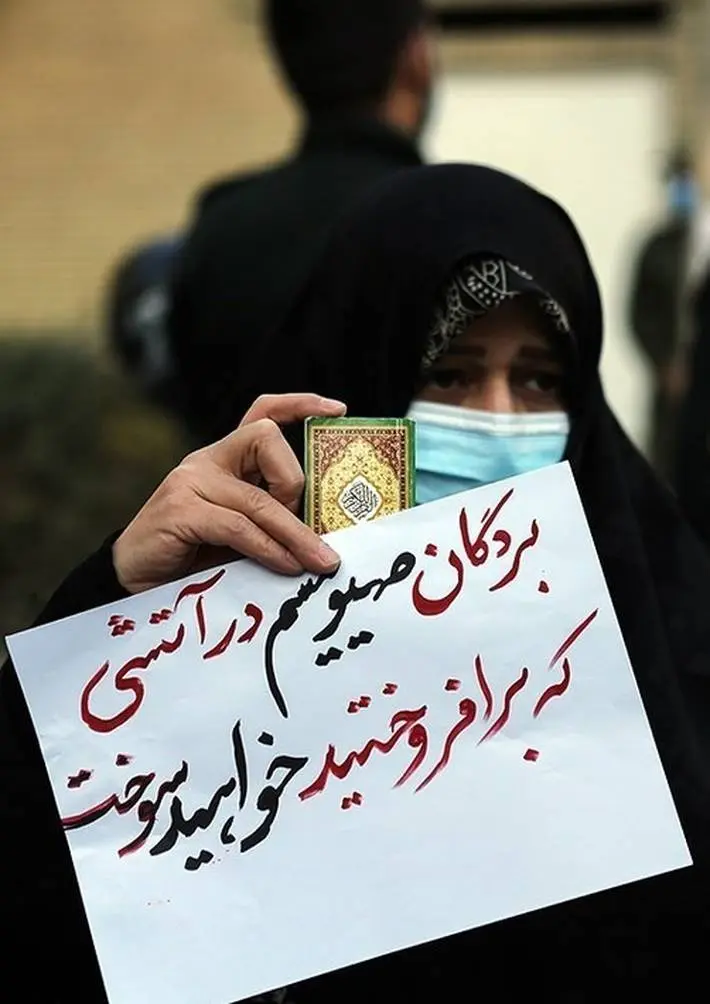 بردگان صهیونیسم در آتشی
که برافروختید خواهید سوخت